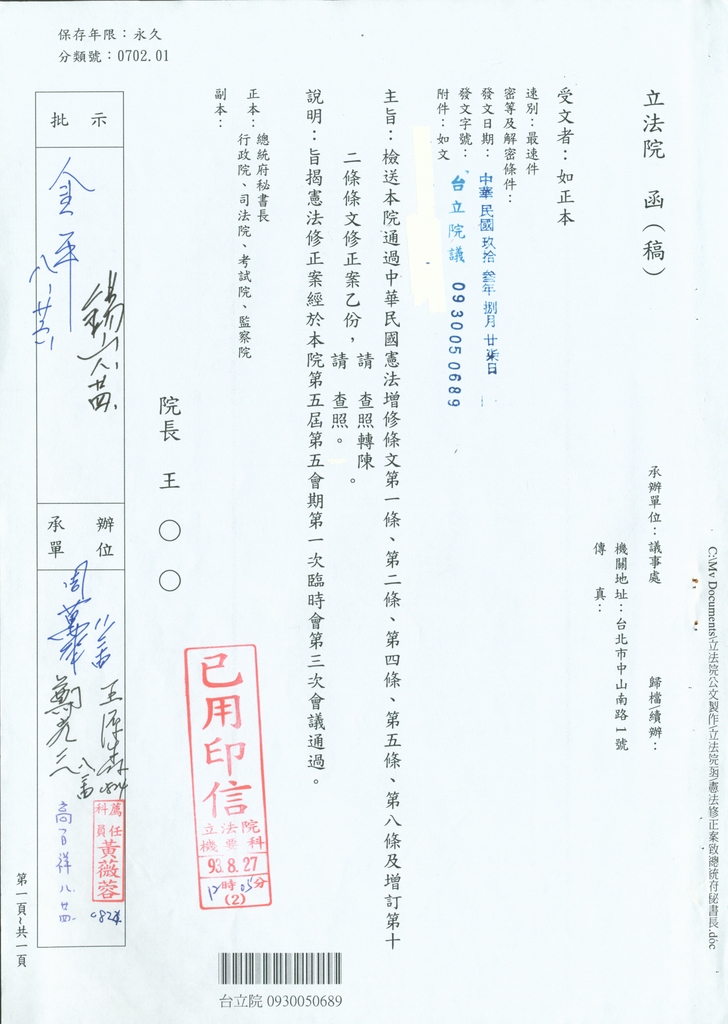 保存年限：永久
分類號：0702.01
立法院　函（稿）
承辦單位：議事處
歸檔/續辦：
機關地址：台北市中山南路1號
傳　真：
受文者：如正本
速別：最速件
密等及解密條件：
發文日期：中華民國玖拾參年捌月廿柒日
發文字號：台立院議0930050689
附件：如文
主旨：檢送本院通過中華民國憲法增修條文第一條、第二條、第四條、第五條、第八條及增訂第十
二條條文修正案乙份，請　查照轉陳。
請　查照。
說明：旨揭憲法修正案經於本院第五屆第五會期第一次臨時會第三次會議通過。
正本：總統府秘書長
行政院、司法院、考試院、監察院
副本：
院長　王　○　○
批示
金平
承辦
單位
鄭光三
王
薦任
科員
黃薇蓉
0824
高百祥 八.廿四.
已用印信
立法院
機要科
93.8.27
12時05分
(2)
第一頁~共一頁
台立院 0930050689
C:\My Documents\立法院公文製作\立法院函\憲法修正案致總統府秘書長.doc